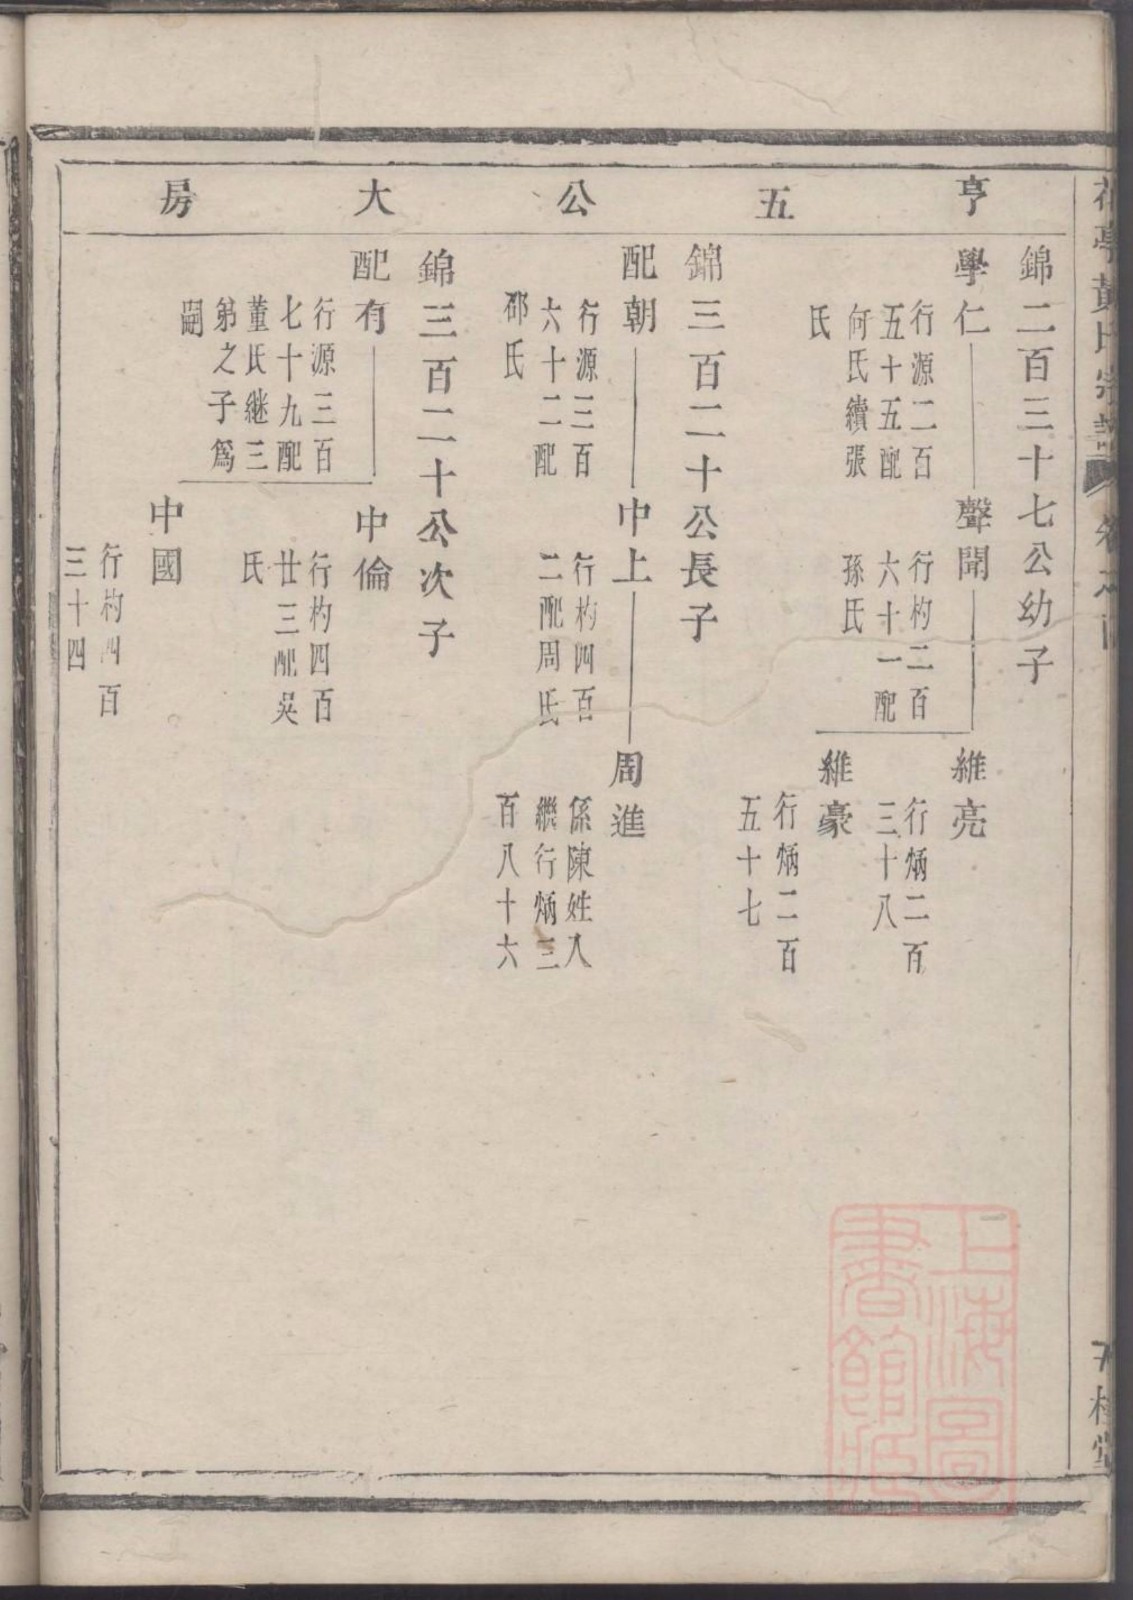 亨五公大房
錦二百三十七公幼子
學仁
行源二百
五十五配
何氏續張
氏
聲聞
行杓二百
六十一配
孫氏
維亮
行炳二百
三十八
維豪
行炳二百
五十七
錦三百二十公長子
配朝
行源三百
六十二配
邵氏
中上
行杓四百
二配周氏
周進
係陳姓入
繼行炳三
百八十六
錦三百二十公次子
配有
行源三百
七十九配
董氏継三
弟之子爲
嗣
中倫
行杓四百
廿三配吳
氏
中國
行杓四百
三十四
黃氏宗譜
桂堂
上海圖書館藏